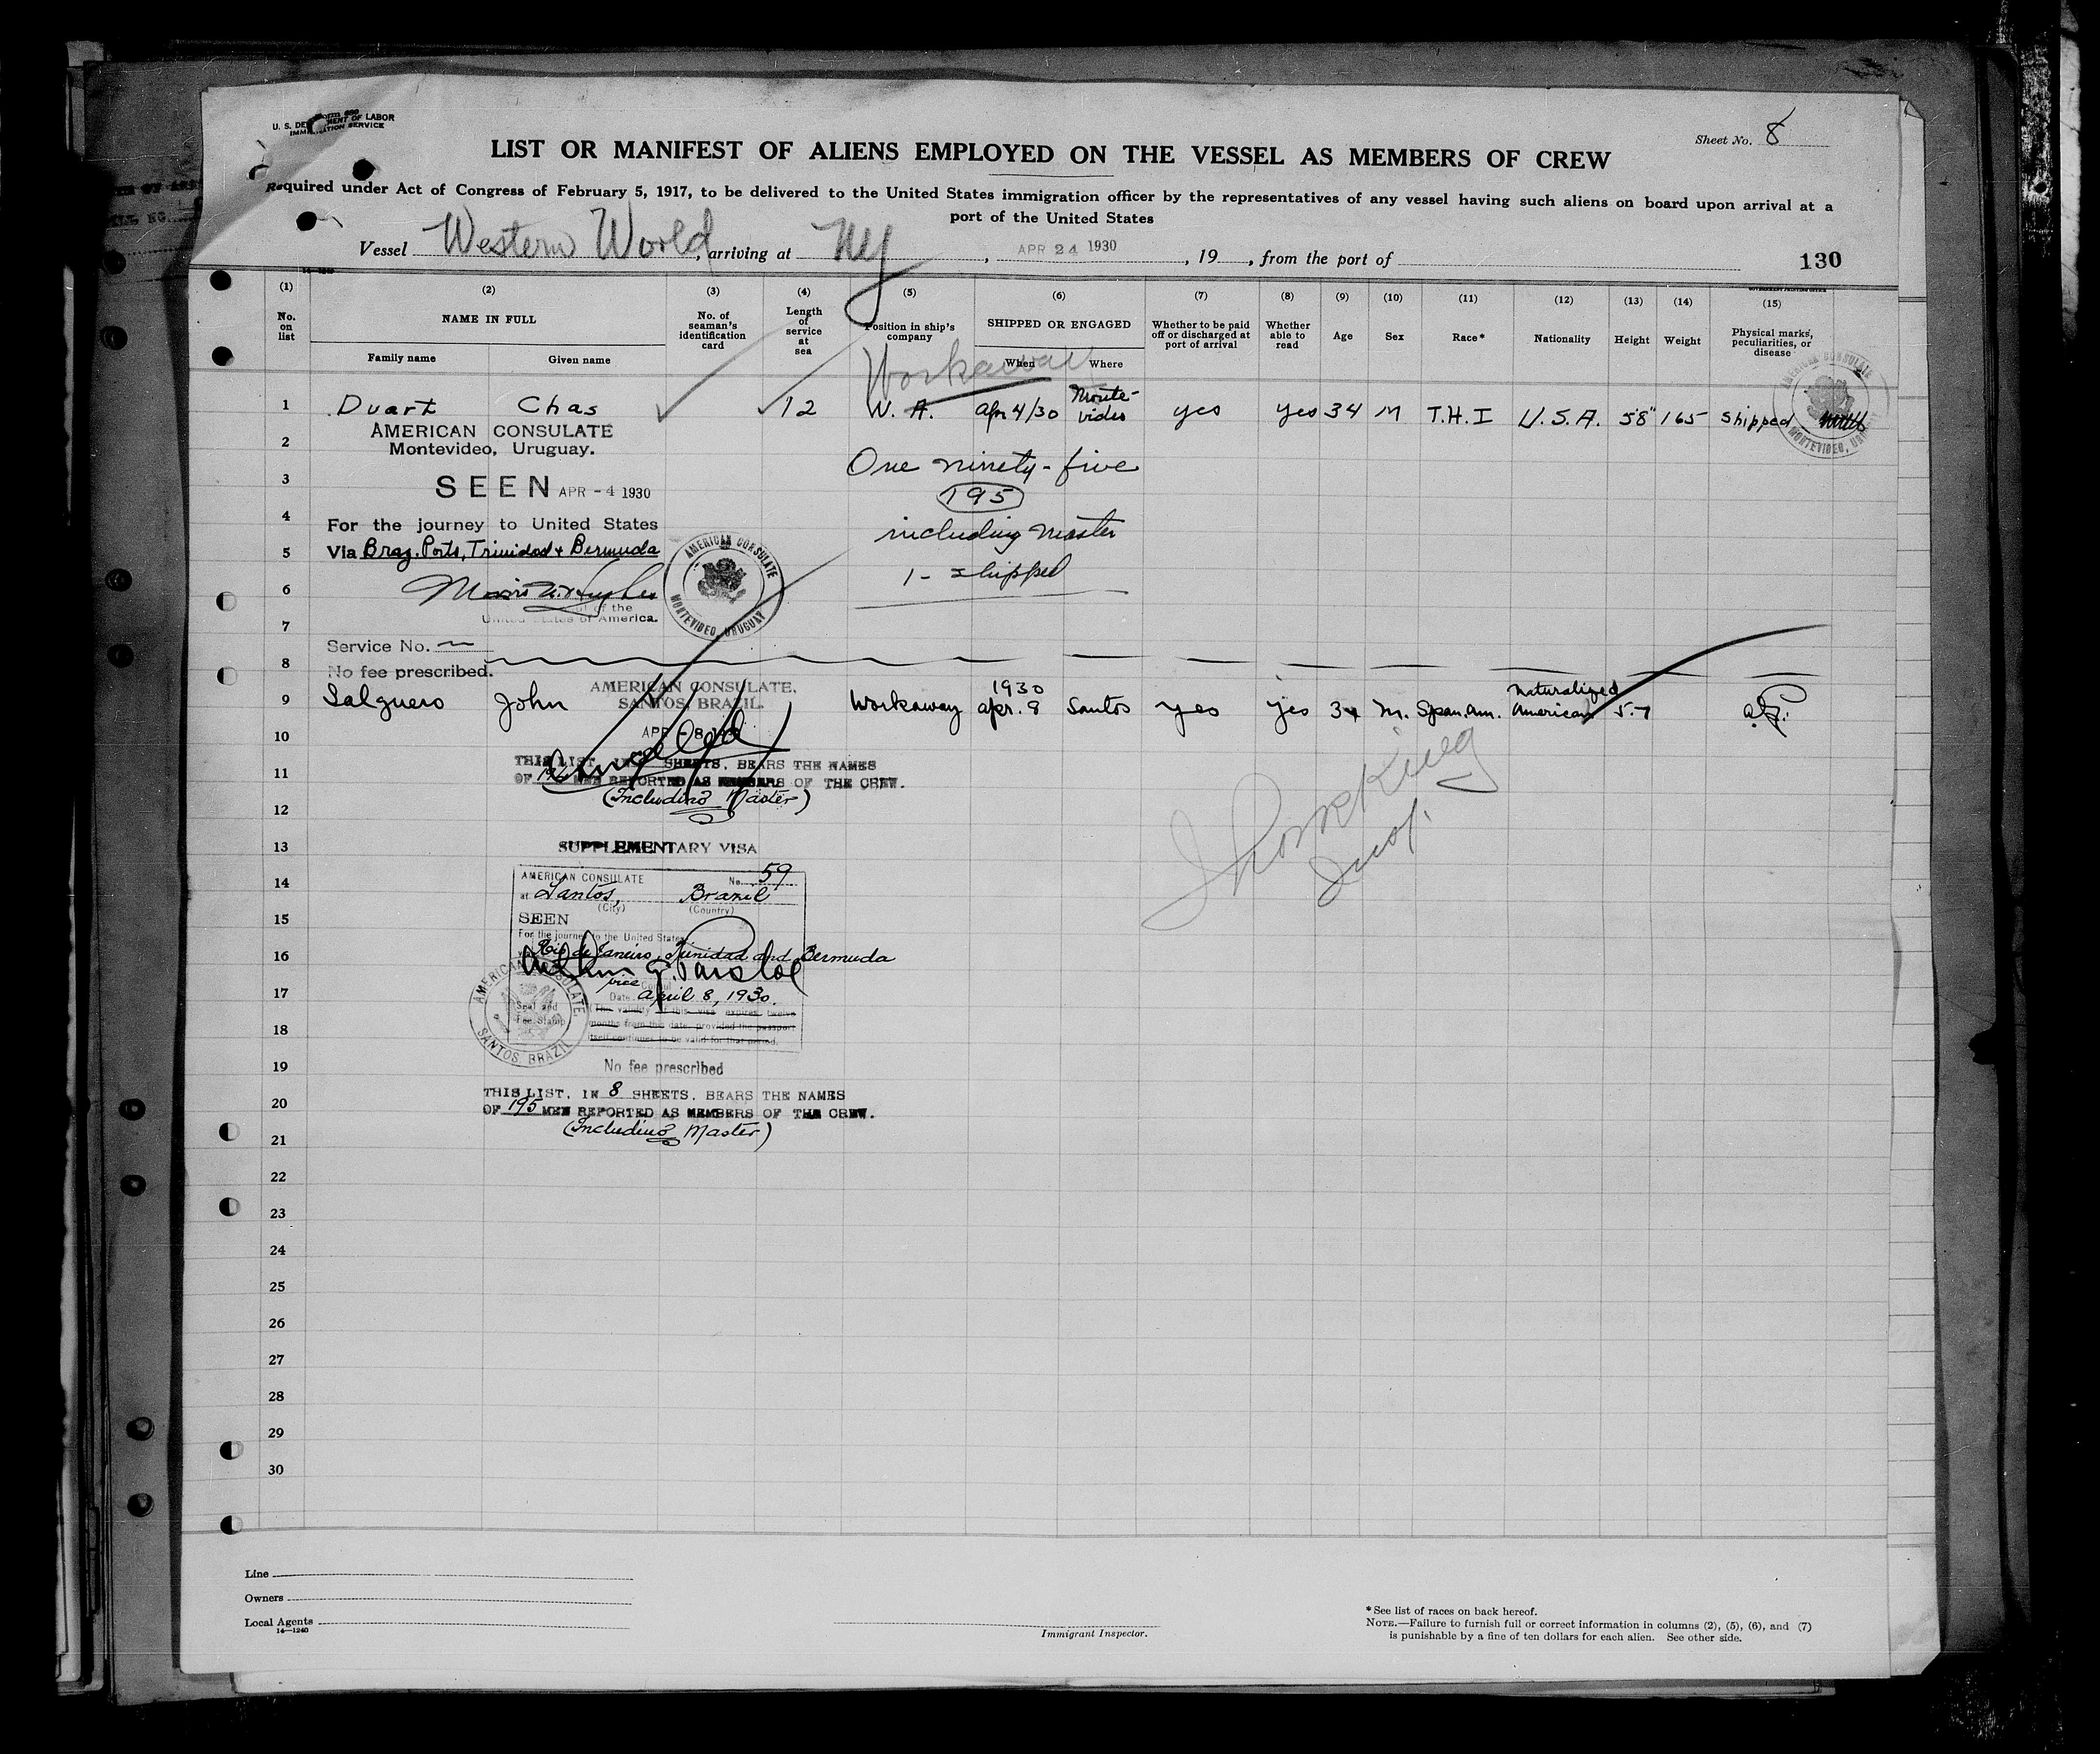 U. S. DEPARTMENT OF LABOR
IMMIGRATION SERVICE
Sheet No. 8
LIST OR MANIFEST OF ALIENS EMPLOYED ON THE VESSEL AS MEMBERS OF CREW
Required under Act of Congress of February 5, 1917, to be delivered to the United States immigration officer by the representatives of any vessel having such aliens on board upon arrival at a
port of the United States
Vessel Western World, arriving at NY, APR 24 1930, 19 , from the port of
130
(1) (2) (3) (4) (5) (6) (7) (8) (9) (10) (11) (12) (13) (14) (15)
No. on list NAME IN FULL No. of seaman's identification card Length of service at sea Position in ship's company SHIPPED OR ENGAGED Whether to be paid off or discharged at port of arrival Whether able to read Age Sex Race* Nationality Height Weight Physical marks, peculiarities, or disease
Family name Given name When Where
Workaway
1 Duart Chas 12 W. A. Apr 4/30 Monte-video yes yes 34 M T.H.I U.S.A. 5'8" 165 Shipped
AMERICAN CONSULATE
Montevideo, Uruguay.
2
SEEN APR -4 1930
One ninety-five
3
195
For the journey to United States
including master
4
Via Braz. Ports, Trinidad & Bermuda
1 - shipped
5
AMERICAN CONSULATE
MONTEVIDEO, URUGUAY
6
of the
United States of America.
7
Service No.
8
No fee prescribed.
9 Salguero John Workaway 1930 Apr. 9 Santos yes yes 34 M. Span. Am. Naturalized American 5-7
AMERICAN CONSULATE,
SANTOS, BRAZIL.
APR -8
Canceled
10
THIS LIST, IN SHEETS, BEARS THE NAMES
11
OF MEN REPORTED AS MEMBERS OF THE CREW.
(Including Master)
12
13
SUPPLEMENTARY VISA
14
AMERICAN CONSULATE No. 59
at Santos, Brazil
(City) (Country)
15
SEEN
For the journey to the United States
16
via Rio de Janeiro, Trinidad and Bermuda
vice
17
Date April 8, 1930.
Seal and
Fee Stamp
(The validity of this visa expires twelve
18
months from this date, provided the passport
itself continues to be valid for that period.
AMERICAN CONSULATE
SANTOS, BRAZIL
19
No fee prescribed
THIS LIST, IN 8 SHEETS, BEARS THE NAMES
20
OF 195 MEN REPORTED AS MEMBERS OF THE CREW.
(Including Master)
21
22
23
24
25
26
27
28
29
30
Line
Owners
Local Agents
14—1240
Immigrant Inspector.
* See list of races on back hereof.
NOTE.—Failure to furnish full or correct information in columns (2), (5), (6), and (7)
is punishable by a fine of ten dollars for each alien. See other side.